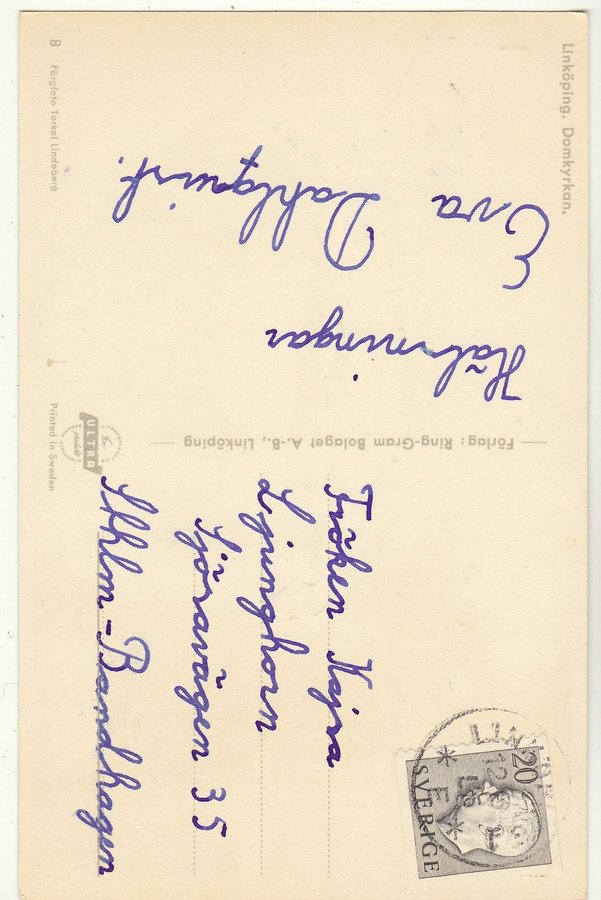 Linköping. Domkyrkan.
Hälsningar
Eva
Dahlquist.
8 Färgfoto Torkel Lindeberg
Förlag: Ring-Gram Bolaget A.-B., Linköping
En
ULTRA
produkt
Printed in Sweden
20
SVERIGE
* E *
Fröken Kajsa
Ljunghorn
Sjösavägen 35
Sthlm-Bandhagen